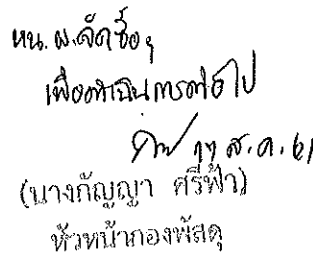 หน. ผ.จัดซื้อฯ
เพื่อดำเนินการต่อไป
17 ส.ค. 61
(นางกัญญา ศรีฟ้า)
หัวหน้ากองพัสดุ